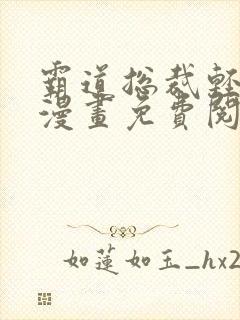 霸道总裁轻
漫畫免費閱
如蓮如玉_hx2